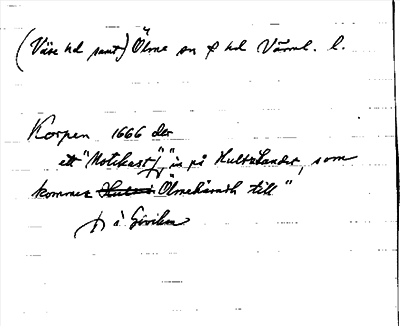 (Väse hd samt) Ölme sn o hd Värml. l.
Korpen 1666 der
ett "Notekast", "in på Hultelandet, som
kommer Ölmehärad till"
på Giviken